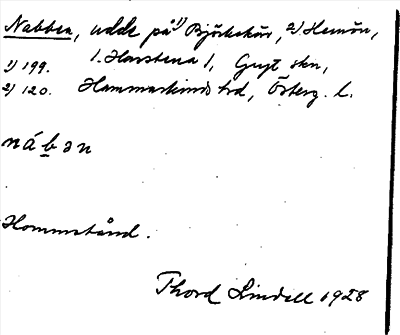 Nabben, udde på 1) Björkskär, 2) Hemön,
1) 199. (Harstena), Gryt skn,
2) 120. Hammarkinds hd, Österg. l.
nábən
Hommstånd.
Thord Lindell 1928